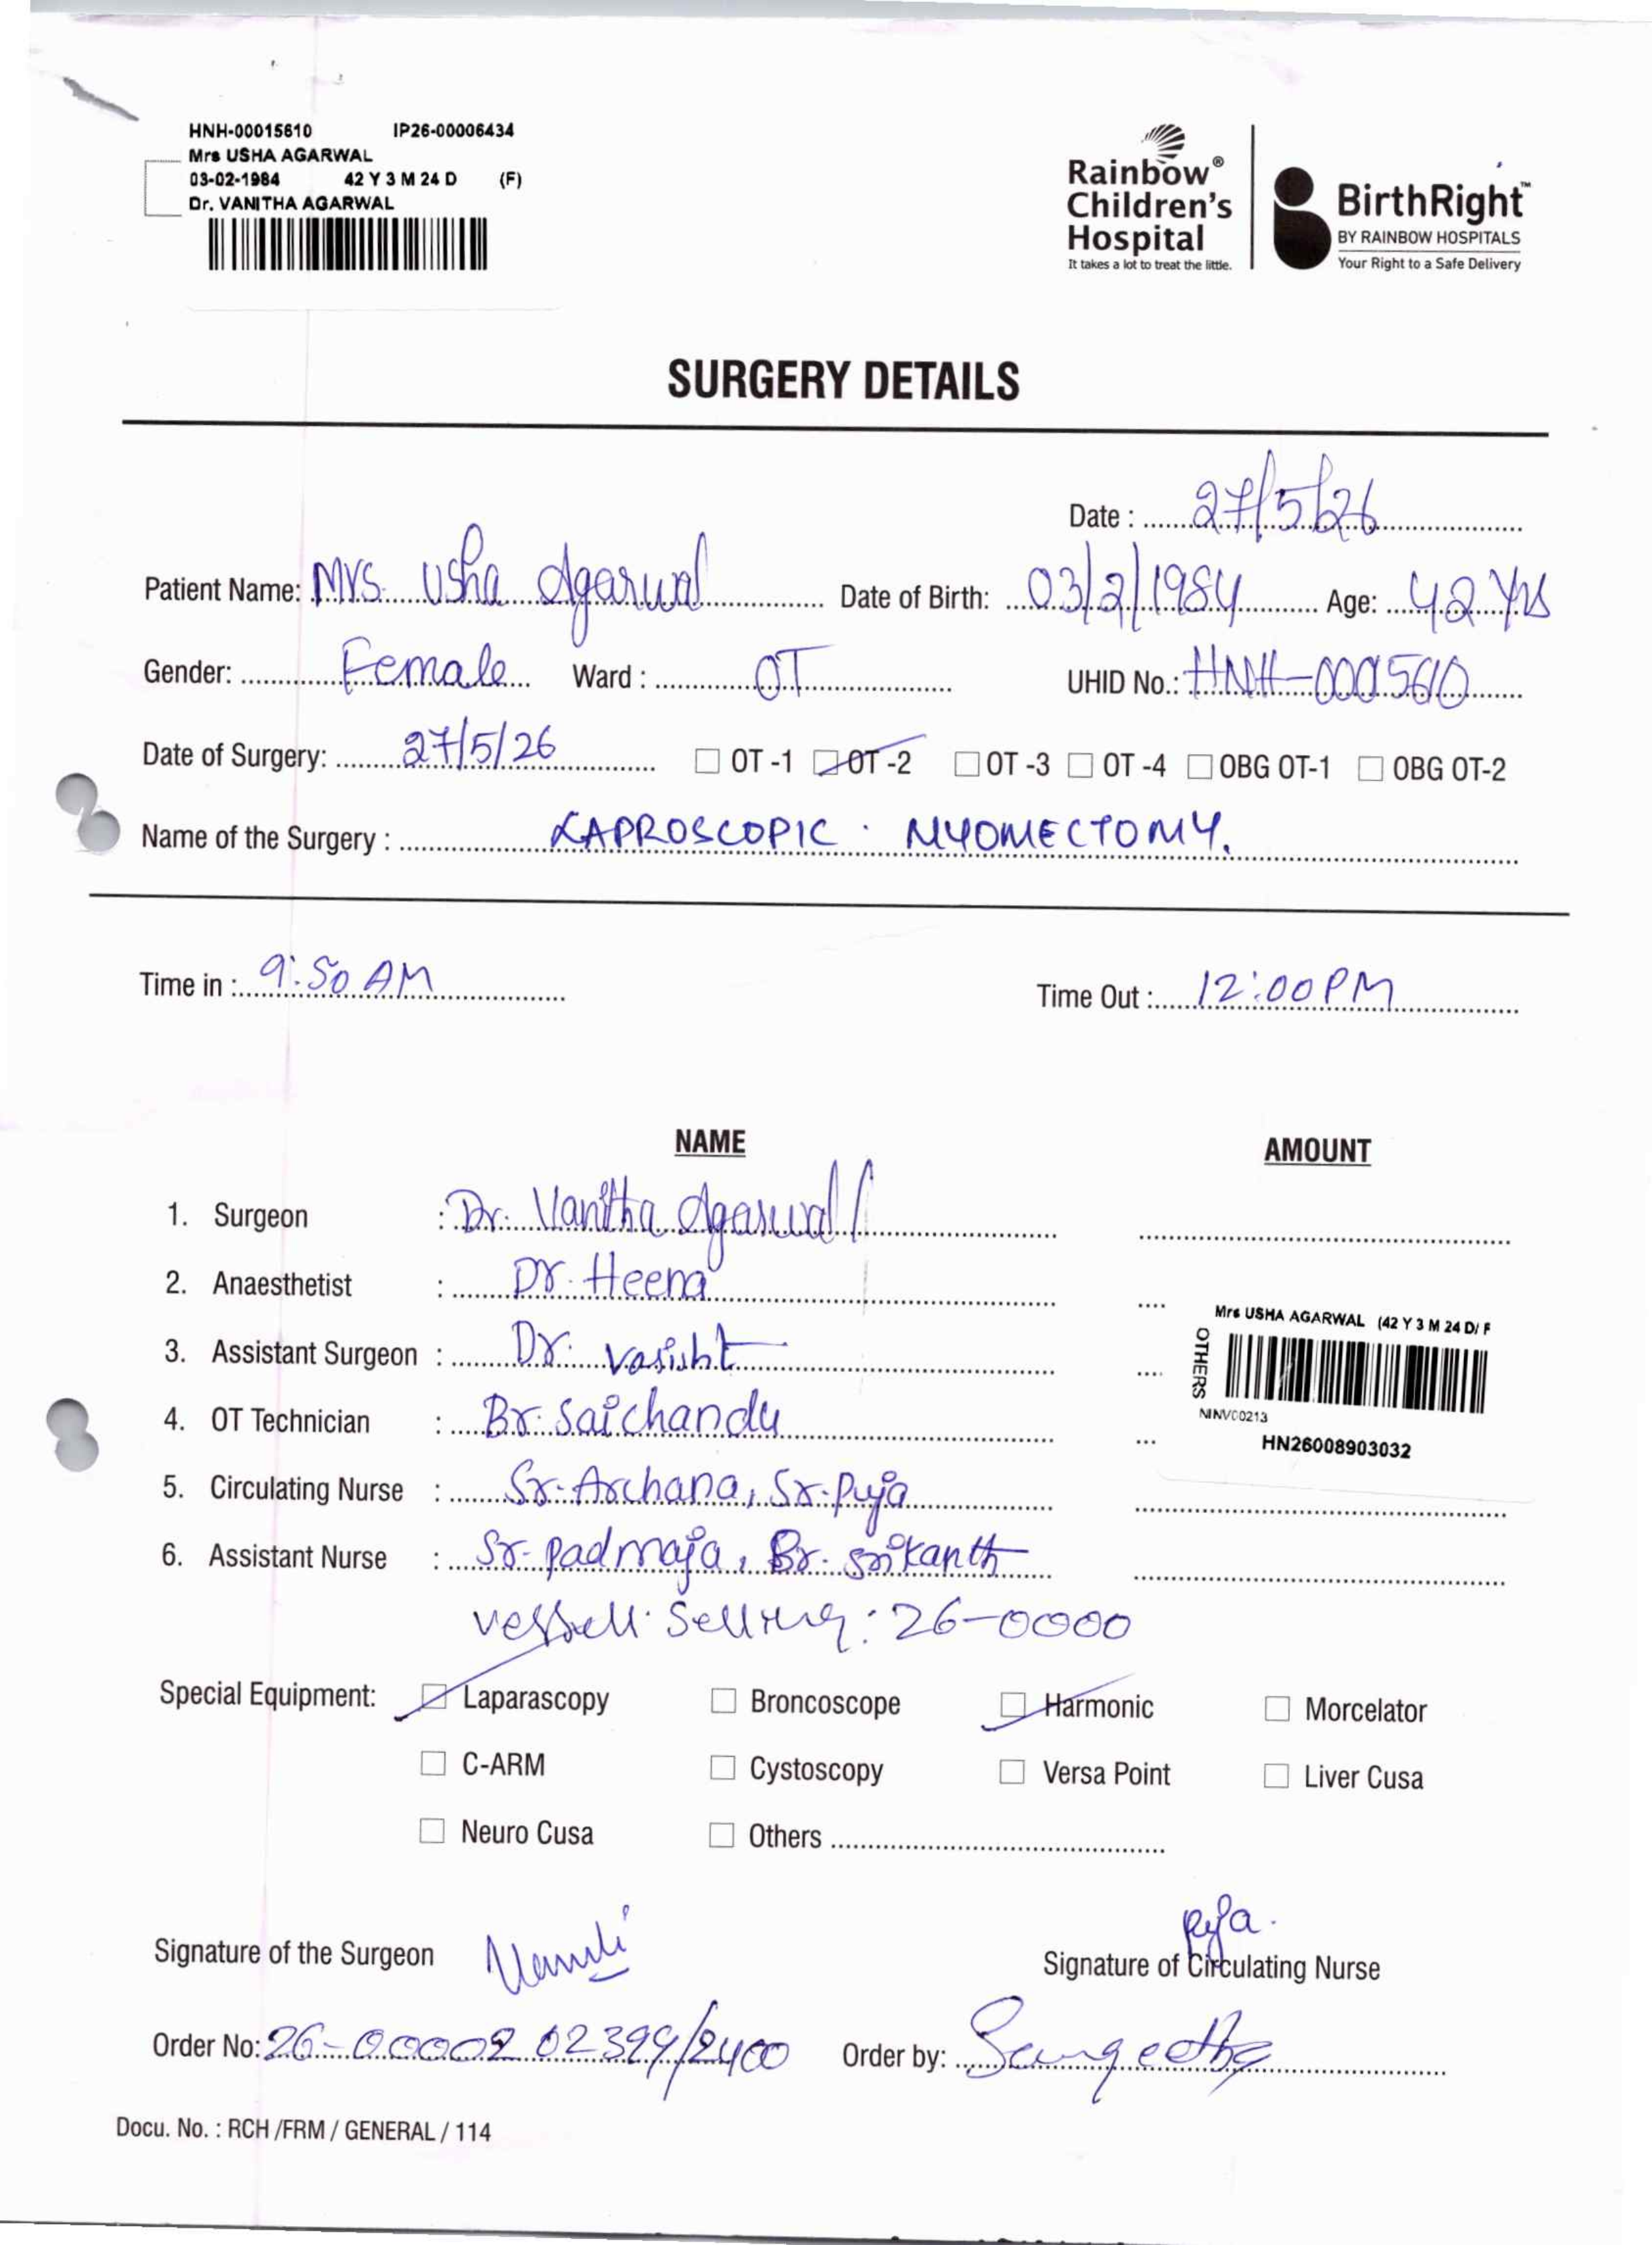 HNH-00015610 IP26-00006434
Mrs USHA AGARWAL
03-02-1984 42 Y 3 M 24 D (F)
Dr. VANITHA AGARWAL
Rainbow®
Children's
Hospital
It takes a lot to treat the little.
BirthRight™
BY RAINBOW HOSPITALS
Your Right to a Safe Delivery
SURGERY DETAILS
Date : 27/5/26
Patient Name: Mrs. Usha Agarwal Date of Birth: 03/2/1984 Age: 42 Yrs
Gender: Female Ward : OT UHID No.: HNH-
Date of Surgery: 27/5/26 OT -1 OT -2 OT -3 OT -4 OBG OT-1 OBG OT-2
Name of the Surgery : LAPROSCOPIC . MYOMECTOMY.
Time in : 9:50 AM Time Out : 12:00 PM
NAME AMOUNT
1. Surgeon : Dr. Vanitha Agarwal
2. Anaesthetist : Dr. Heena
Mrs USHA AGARWAL (42 Y 3 M 24 D/ F
3. Assistant Surgeon : Dr. Vasisht
OTHERS
4. OT Technician : Br. Saichandu
NINV00213
HN26008903032
5. Circulating Nurse : Sr. Archana, Sr. Puja
6. Assistant Nurse : Sr. padmaja, Br. Srikanth
26-0000
Special Equipment: Laparascopy Broncoscope Harmonic Morcelator
C-ARM Cystoscopy Versa Point Liver Cusa
Neuro Cusa Others
Signature of the Surgeon Signature of Circulating Nurse
Order No: 26-0000202399/2400 Order by: Sangeetha
Docu. No. : RCH /FRM / GENERAL / 114